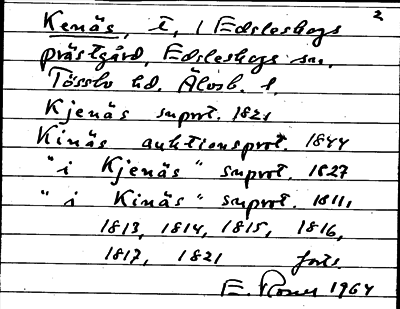 2
Kenäs, t, i Edsleskogs
prästgård, Edsleskogs sn,
Tössbo hd. Älvsb. l.
Kjenäs suprot. 1821
Kinäs auktionsprot. 1844
"i Kjenäs" suprot. 1827
"i Kinäs" suprot. 1811,
1813, 1814, 1815, 1816,
1817, 1821 forts.
E. 1964